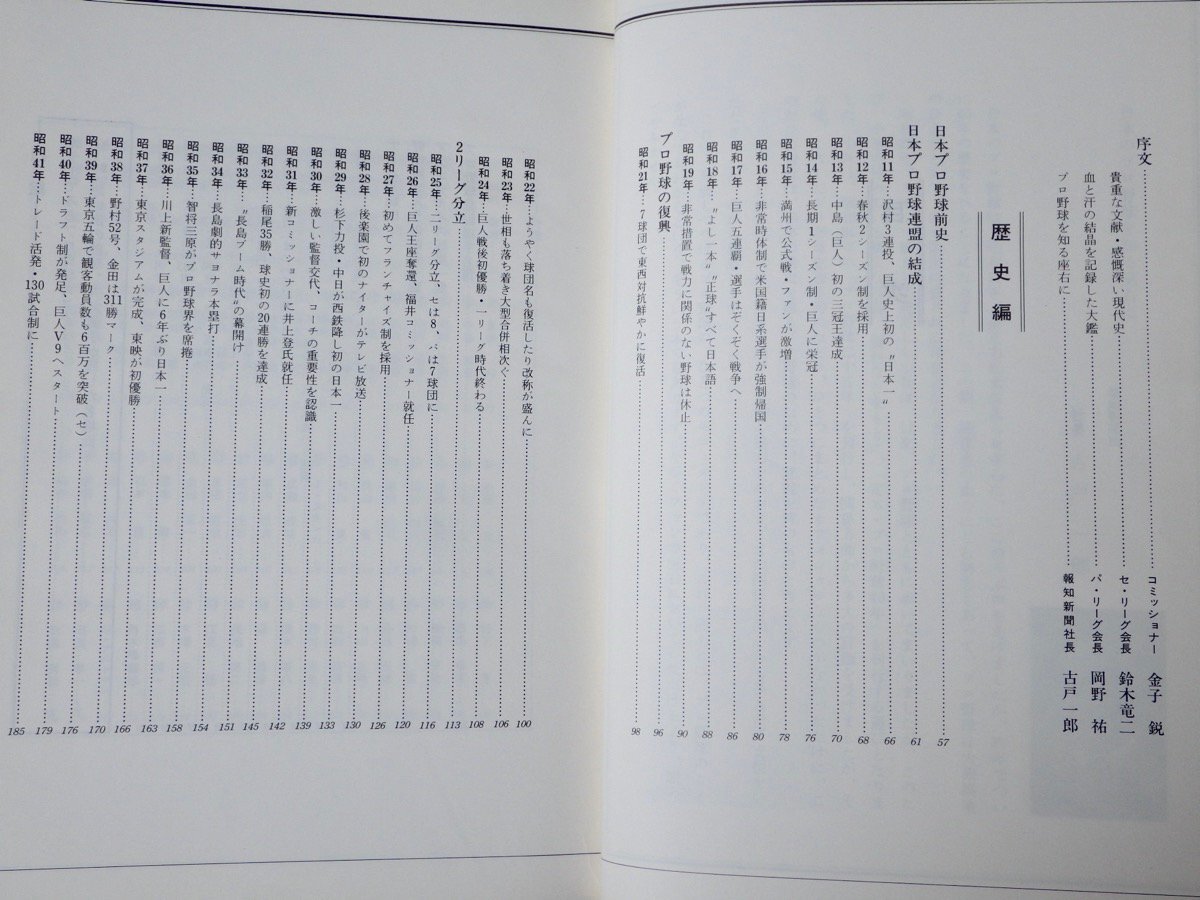 序文 コミッショナー 金子 鋭
貴重な文献・感慨深い現代史 セ・リーグ会長 鈴木竜二
血と汗の結晶を記録した大鑑 パ・リーグ会長 岡野 祐
プロ野球を知る座右に 報知新聞社長 古戸一郎
歴史編
日本プロ野球前史 57
日本プロ野球連盟の結成 61
昭和11年…沢村3連投、巨人史上初の〝日本一〟 66
昭和12年…春秋2シーズン制を採用 68
昭和13年…中島(巨人)初の三冠王達成 70
昭和14年…長期1シーズン制・巨人に栄冠 76
昭和15年…満州で公式戦・ファンが激増 78
昭和16年…非常時体制で米国籍日系選手が強制帰国 80
昭和17年…巨人五連覇・選手はぞくぞく戦争へ 86
昭和18年…〝よし一本〟〝正球〟すべて日本語 88
昭和19年…非常措置で戦力に関係のない野球は休止 90
プロ野球の復興 96
昭和21年…7球団で東西対抗鮮やかに復活 98
昭和22年…ようやく球団名も復活したり改称が盛んに 100
昭和23年…世相も落ち着き大型合併相次ぐ 106
昭和24年…巨人戦後初優勝・一リーグ時代終わる 108
2リーグ分立 113
昭和25年…二リーグ分立、セは8、パは7球団に 116
昭和26年…巨人王座奪還、福井コミッショナー就任 120
昭和27年…初めてフランチャイズ制を採用 126
昭和28年…後楽園で初のナイターがテレビ放送 130
昭和29年…杉下力投・中日が西鉄降し初の日本一 133
昭和30年…激しい監督交代、コーチの重要性を認識 139
昭和31年…新コミッショナーに井上登氏就任 142
昭和32年…稲尾35勝、球史初の20連勝を達成 145
昭和33年…〝長島ブーム時代〟の幕開け 151
昭和34年…長島劇的サヨナラ本塁打 154
昭和35年…智将三原がプロ野球界を席捲 158
昭和36年…川上新監督、巨人に6年ぶり日本一 163
昭和37年…東京スタジアムが完成、東映が初優勝 166
昭和38年…野村52号、金田は311勝マーク 170
昭和39年…東京五輪で観客動員数も6百万を突破(セ) 176
昭和40年…ドラフト制が発足、巨人V9へスタート 179
昭和41年…トレード活発・130試合制に 185